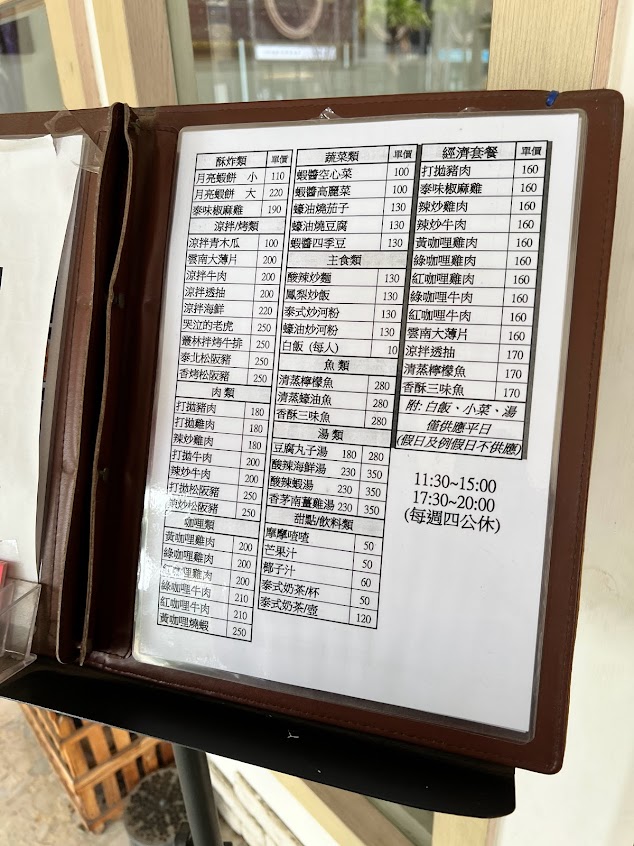 酥炸類 單價
月亮蝦餅 小 110
月亮蝦餅 大 220
泰味椒麻雞 190
涼拌/烤類
涼拌青木瓜 100
雲南大薄片 200
涼拌牛肉 200
涼拌透抽 200
涼拌海鮮 220
哭泣的老虎 250
叢林拌烤牛排 250
泰北松阪豬 250
香烤松阪豬 250
肉類
打拋豬肉 180
打拋雞肉 180
辣炒雞肉 180
打拋牛肉 200
辣炒牛肉 200
打拋松阪豬 250
辣炒松阪豬 250
咖哩類
黃咖哩雞肉 200
綠咖哩雞肉 200
紅咖哩雞肉 200
綠咖哩牛肉 210
紅咖哩牛肉 210
黃咖哩燒蝦 250
蔬菜類 單價
蝦醬空心菜 100
蝦醬高麗菜 100
蠔油燒茄子 130
蠔油燒豆腐 130
蝦醬四季豆 130
主食類
酸辣炒麵 130
鳳梨炒飯 130
泰式炒河粉 130
蠔油炒河粉 130
白飯 (每人) 10
魚類
清蒸檸檬魚 280
清蒸蠔油魚 280
香酥三味魚 280
湯類
豆腐丸子湯 180 280
酸辣海鮮湯 230 350
酸辣蝦湯 230 350
香茅南薑雞湯 230 350
甜點/飲料類
摩摩喳喳 50
芒果汁 50
椰子汁 60
泰式奶茶/杯 50
泰式奶茶/壺 120
經濟套餐 單價
打拋豬肉 160
泰味椒麻雞 160
辣炒雞肉 160
辣炒牛肉 160
黃咖哩雞肉 160
綠咖哩雞肉 160
紅咖哩雞肉 160
綠咖哩牛肉 160
紅咖哩牛肉 160
雲南大薄片 160
涼拌透抽 170
清蒸檸檬魚 170
香酥三味魚 170
附: 白飯、小菜、湯
僅供應平日
(假日及例假日不供應)
11:30~15:00
17:30~20:00
(每週四公休)